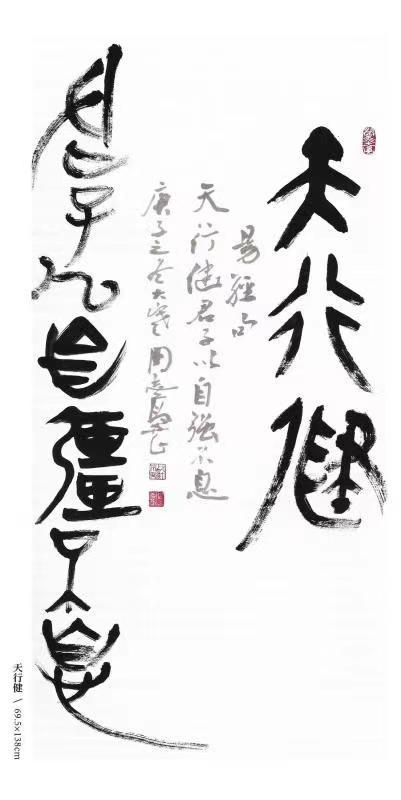 天行健
易經句
天行健君子以自强不息
庚子之冬大寒周志高
君子以自彊不息
天行健 \ 69.5×138cm